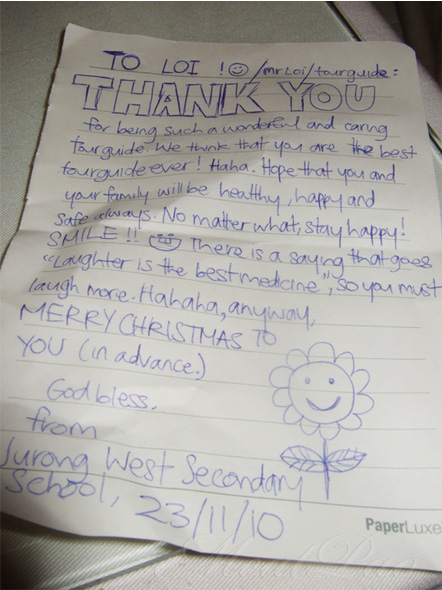 TO LOI ! /mr loi/tourguide:
THANK YOU
for being such a wonderful and caring
tourguide. We think that you are the best
tourguide ever! Haha. Hope that you and
your family will be healthy, happy and
safe always. No matter what, stay happy!
SMILE!! There is a saying that goes
"Laughter is the best medicine", so you must
laugh more. Hahaha, anyway,
MERRY CHRISTMAS TO
YOU (in advance.)
God bless.
from
Jurong West Secondary
School, 23/11/10
PaperLuxe